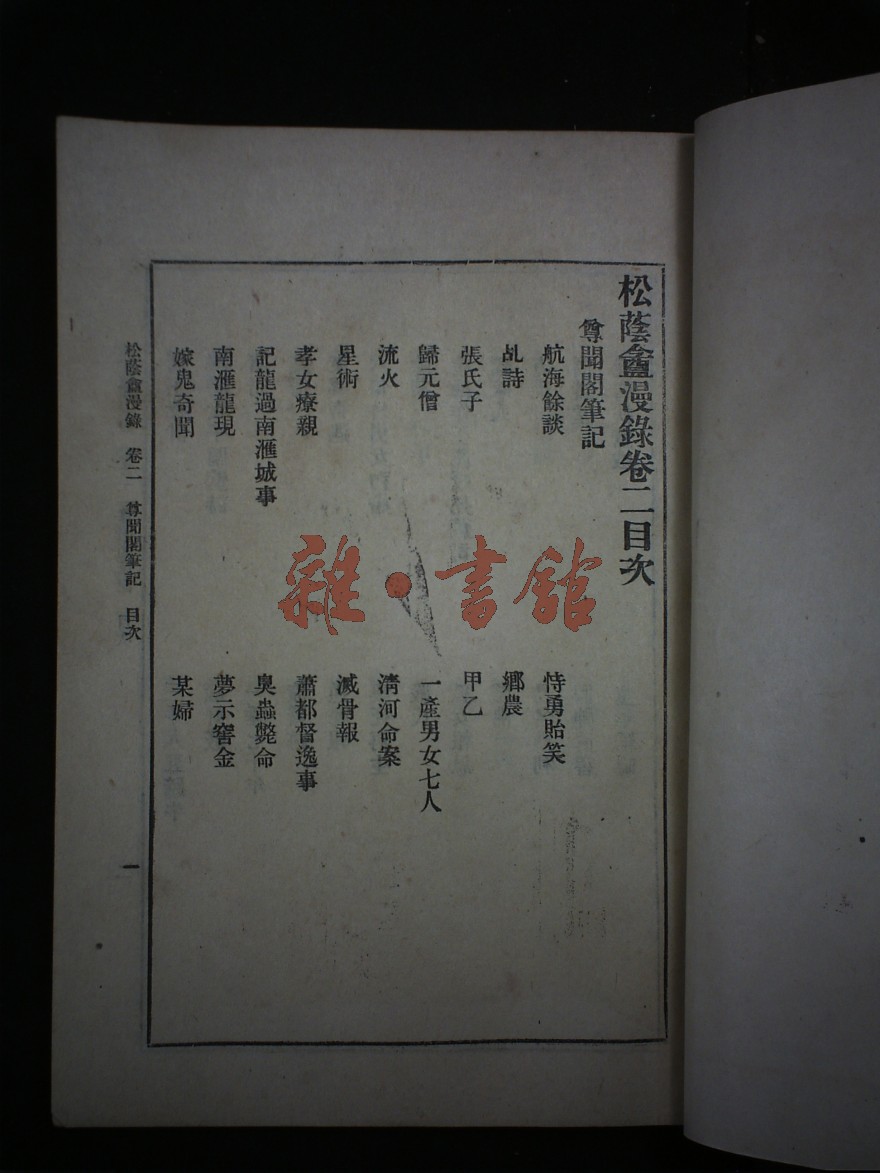 松蔭盦漫錄卷二目次
尊聞閣筆記
航海餘談
恃勇貽笑
乩詩
鄉農
張氏子
甲乙
歸元僧
一產男女七人
流火
清河命案
星術
滅骨報
孝女療親
蕭都督逸事
記龍過南滙城事
臭蟲斃命
南滙龍現
夢示窖金
嫁鬼奇聞
某婦
松蔭盦漫錄 卷二 尊聞閣筆記 目次
一
雜·書館